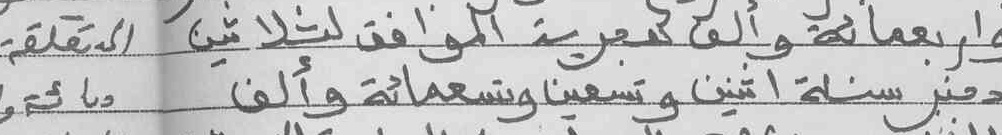 واربعمائة وألف هجرية الموافق لثلاثين المتعلقة
دجنبر سنة اثنين وتسعين وتسعمائة وألف